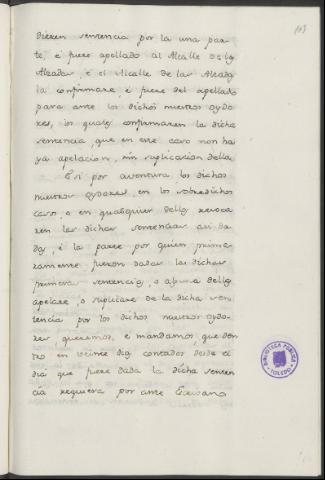 103
dieren sentencia por la una par
te, é fuere apellado al Alcalle de las
Alzadas, é el Alcalle de las Alzadas
la confirmare, é fuere del apellado
para ante los dichos nuestros oydo
res, los quales confirmaren la dicha
sentencia, que en este caso non ha
ya apelacion, nin suplicacion della.
E si por aventura los dichos
nuestros oydores, en los sobredichos
casos, o en qualquier dellos revoca
ren las dichas sentencias asi da
das, é la parte por quien prime
ramente fueron dadas las dichas
primeras sentencias, o alguna dellas
apelare, o suplicare de la dicha sen
tencia por los dichos nuestros oydo
res queremos, é mandamos que den
tro en veinte dias contados desde el
dia que fuere dada la dicha senten
cia requiera por ante Escrivano
BIBLIOTECA PUBLICA
TOLEDO